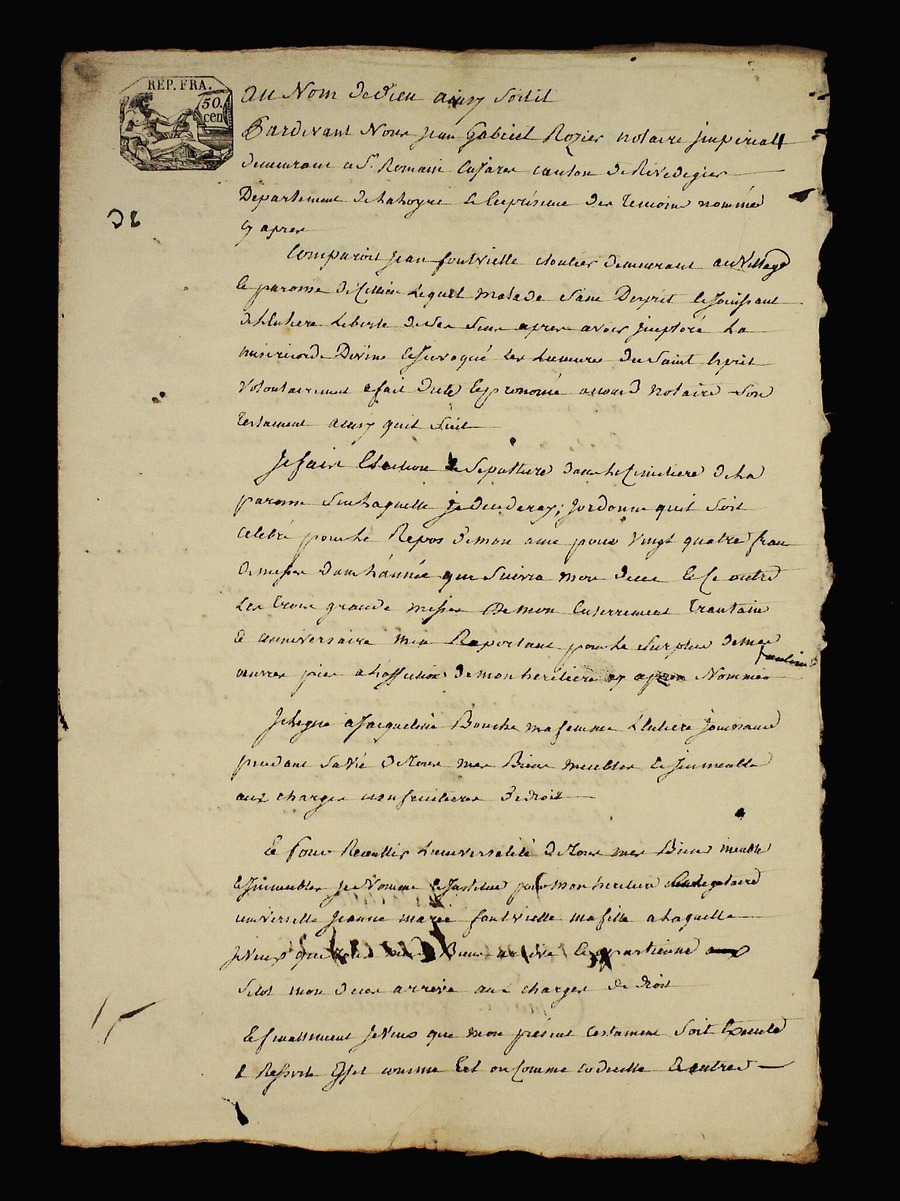 REP. FRA.
50.
cen
au Nom de dieu ainsy soit il
Pardevant Nous jean Gabriel Rozier notaire jmperial
demeurant a St. Romain en jarez canton de Rive de gier
Departement de la loyre et en présence des temoins nommés
cy apres
Comparoit jean fontvielle cloutier demeurant au village
et paroisse de Cellieu lequel malade sain Desprit et jouissant
de l'entiere Liberté de ses sens apres avoir jmploré La
misericorde Divine et jnvoqué les Lumieres du Saint Esprit
volontairement a fait dicté et prononcé a nous d notaire son
testament ainsy quil suit
Je fais Election de Sepulture dans le Cimetiere de la
paroisse sur laquelle je decederay; jordonne quil soit
celebré pour le Repos de mon ame pour vingt quatre fran
de messes dans l'année que suivra mon deces et ce outre
Les trois grande messes de mon Enterrement trantain
et anniversaire m'en Raportant pour le surplus de mes
œuvres pies a laffection de mon heritiere cy apres Nommée
Je legue a Jacqueline Bouche ma femme L'entiere jouissance
pendant sa vie de tous mes Biens meubles et jmmeuble
aux charges usufruitieres de droit
Et pour Recueillir L'universalité de tous mes Biens meuble
et jmmeubles je Nomme et jnstitue pour mon heritiere et legataire
universelle jeanne marie fontvielle ma fille a laquelle
je veux que Biens arrive et apartienne
sitot mon deces arrivé aux charges de droit
Et finallement je veux que mon présent testament soit Executé
et Ressorte Effet comme tel ou comme codicille et entre